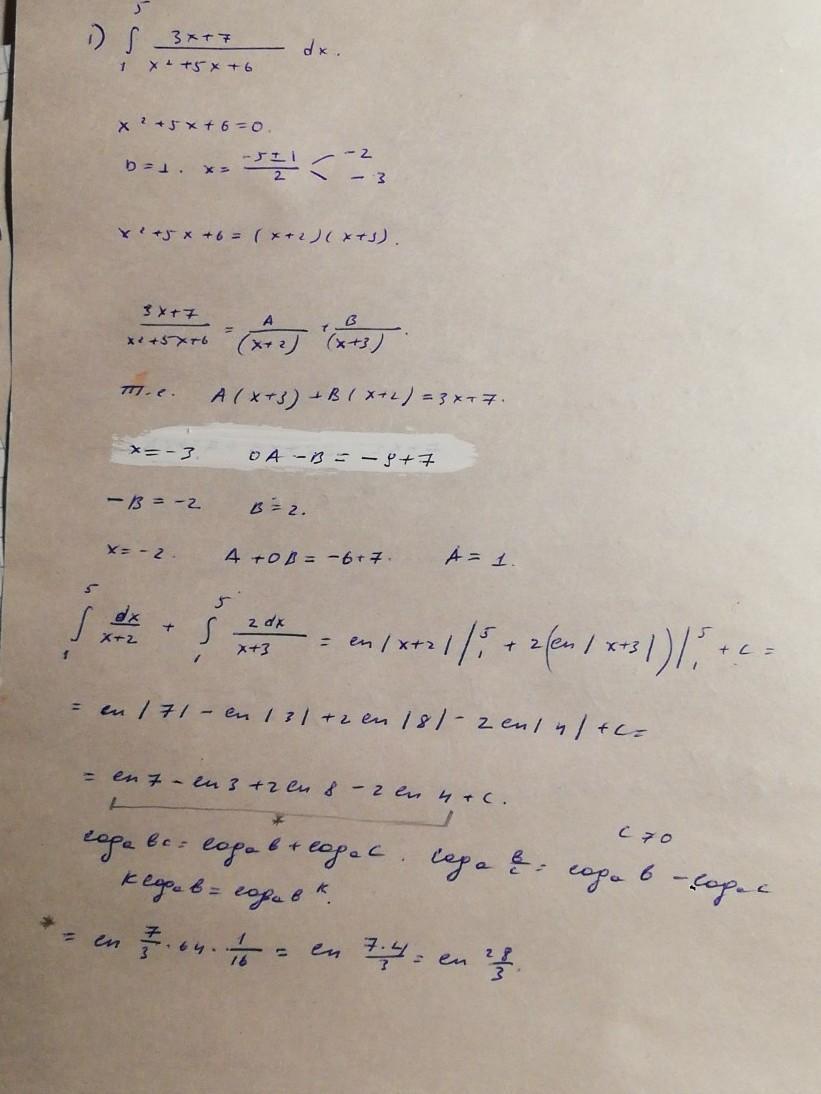 1) ∫₁⁵ (3x+7)/(x²+5x+6) dx.
x²+5x+6=0.
D=1. x= (-5±1)/2 < -2 -3
x²+5x+6=(x+2)(x+3).
(3x+7)/(x²+5x+6) = A/(x+2) + B/(x+3).
т.е. A(x+3)+B(x+2)=3x+7.
x=-3 0A-B=-9+7
-B=-2 B=2.
x=-2. A+0B=-6+7. A=1.
∫₁⁵ dx/(x+2) + ∫₁⁵ 2dx/(x+3) = ln|x+2| |₁⁵ + 2(ln|x+3|)|₁⁵ + c =
= ln|7| - ln|3| + 2ln|8| - 2ln|4| + c =
= ln7 - ln3 + 2ln8 - 2ln4 + c.
*
c>0
logₐbc = logₐb + logₐc. logₐ b/c = logₐb - logₐc
k logₐb = logₐbᵏ.
* = ln 7/3 · 64 · 1/16 = ln (7·4)/3 = ln 28/3.